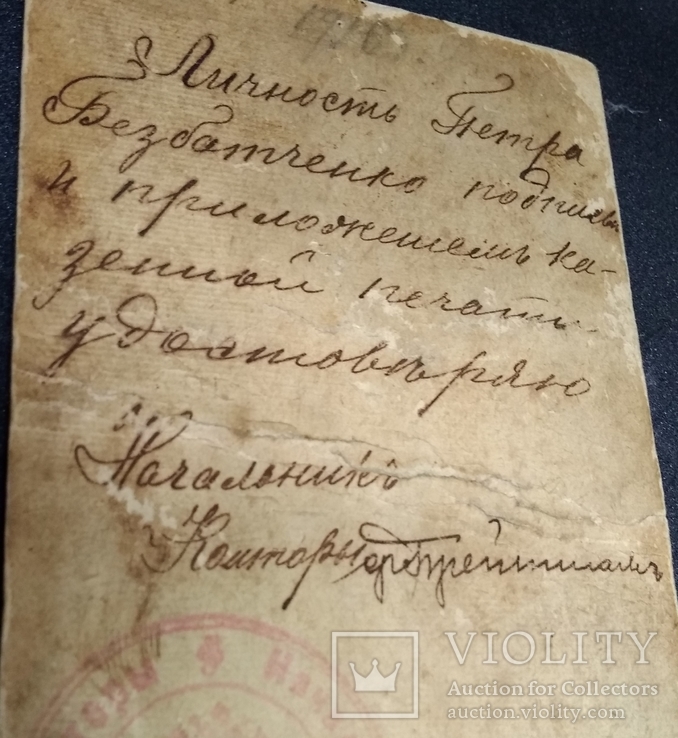 1916
Личность Петра
Безбатченко подписью
и приложенiемъ ка-
зенной печати
удостовѣряю
Начальникъ
Конторы
VIOLITY
Auction for Collectors
auction.violity.com